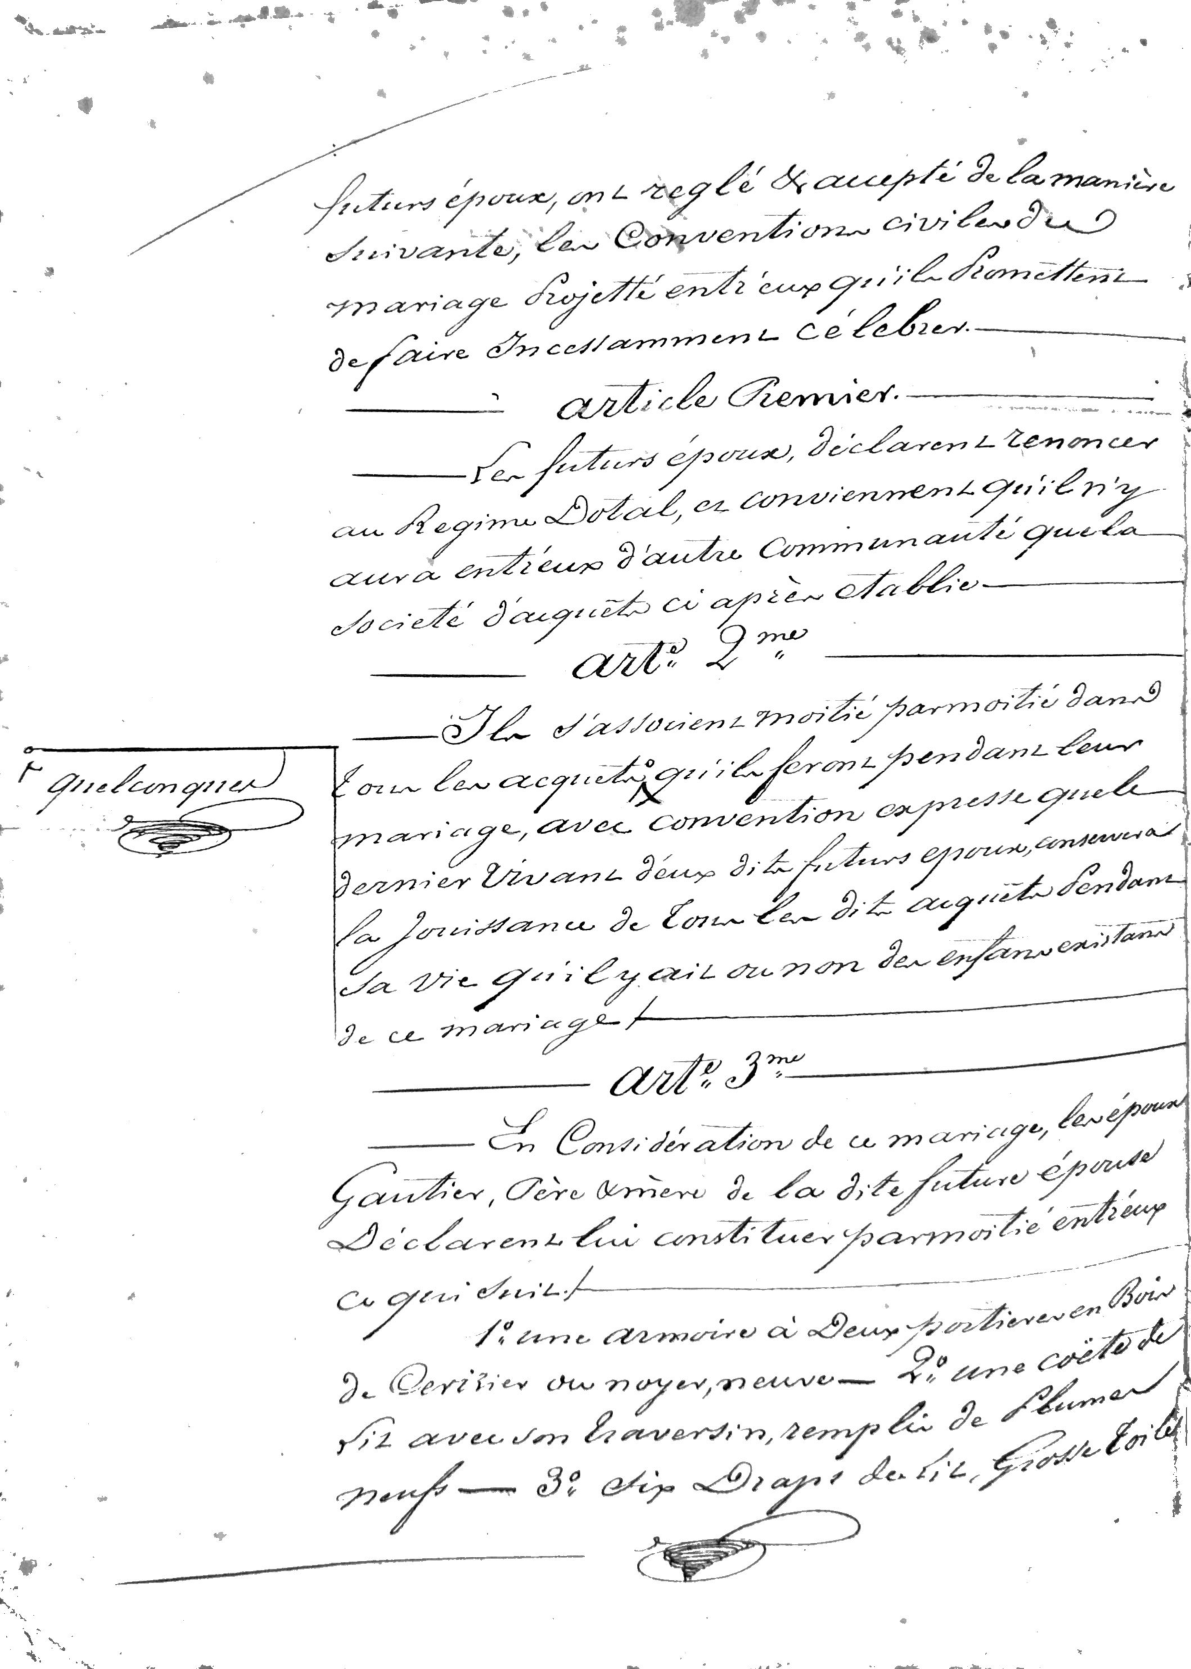 futurs époux, ont reglé & accepté de la manière
Suivante, les Conventions civiles du
mariage Projetté entr'eux qu'ils Promettent
de faire Incessamment célebrer.
article Premier.
Les futurs époux, déclarent renoncer
au Regime Dotal, et conviennent qu'il n'y
aura entr'eux d'autre Communauté que la
Societé d'acquêts ci après etablie
arte. 2me
Ils s'associent moitié par moitié dans
quelconques
tous les acquêts qu'ils feront pendant leur
mariage, avec convention expresse que le
dernier Vivant d'eux dits futurs epoux, conservera
la Jouissance de tous les dits acquêts Pendant
Sa vie qu'il y ait ou non des enfans existans
de ce mariage
arte. 3me
En Considération de ce mariage, les époux
Gautier, Père & mère de la dite future épouse
Déclarent lui constituer par moitié entr'eux
ce qui Suit
1o. une armoire à Deux portieres en Bois
de Cerisier ou noyer, neuve — 2o. une coëte de
Lit avec son traversin, remplis de Plumes
neufs — 3o. Six Draps de Lit, Grosse toile